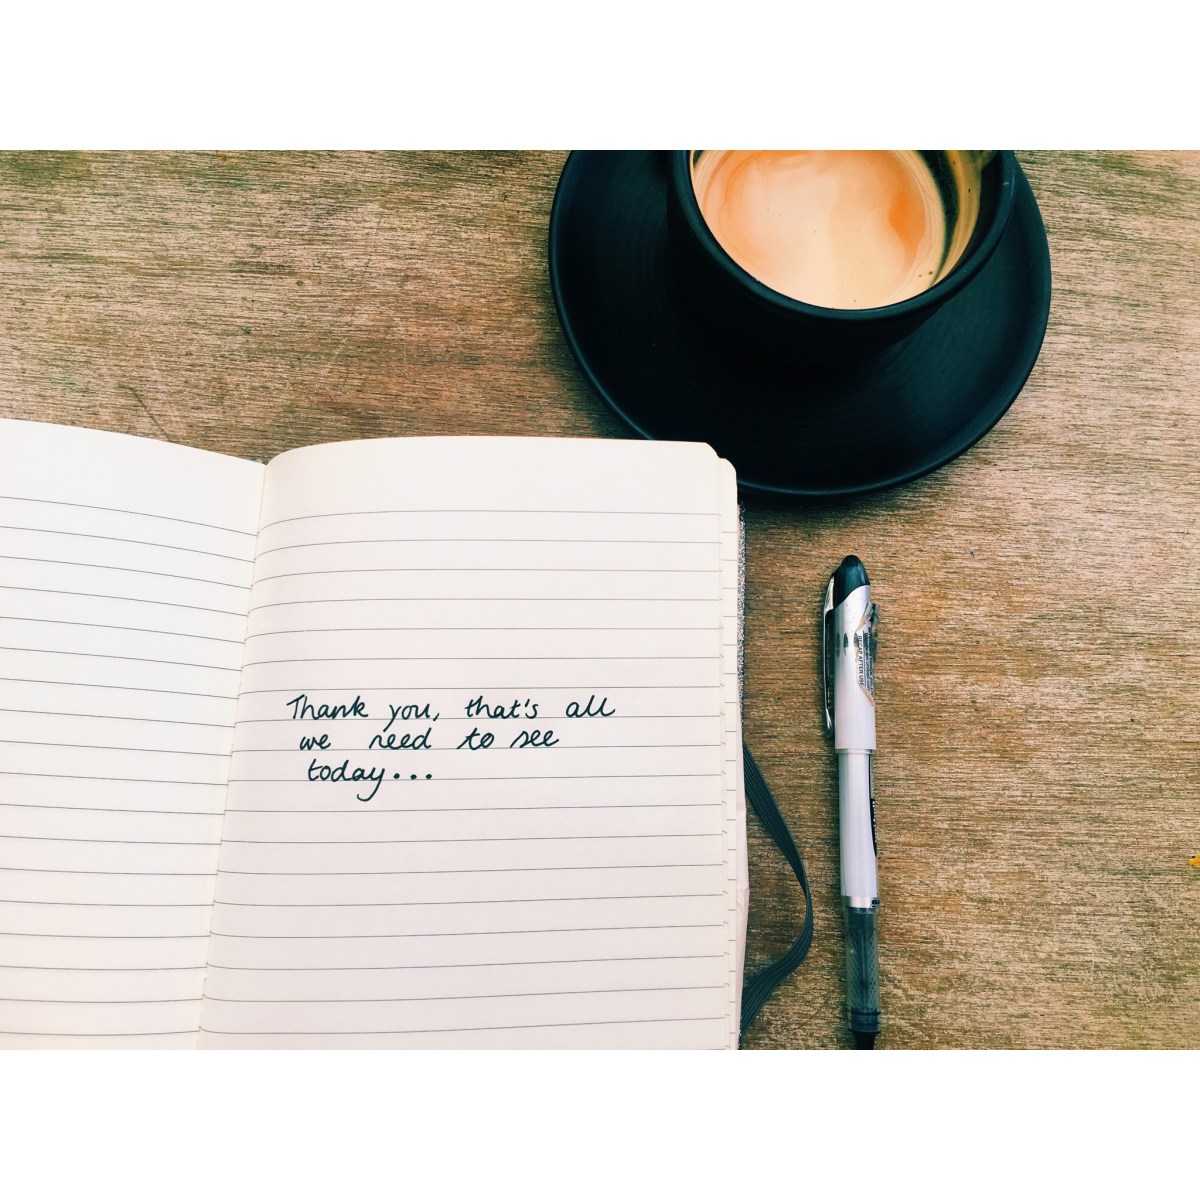 Thank you, that's all
we need to see
today...